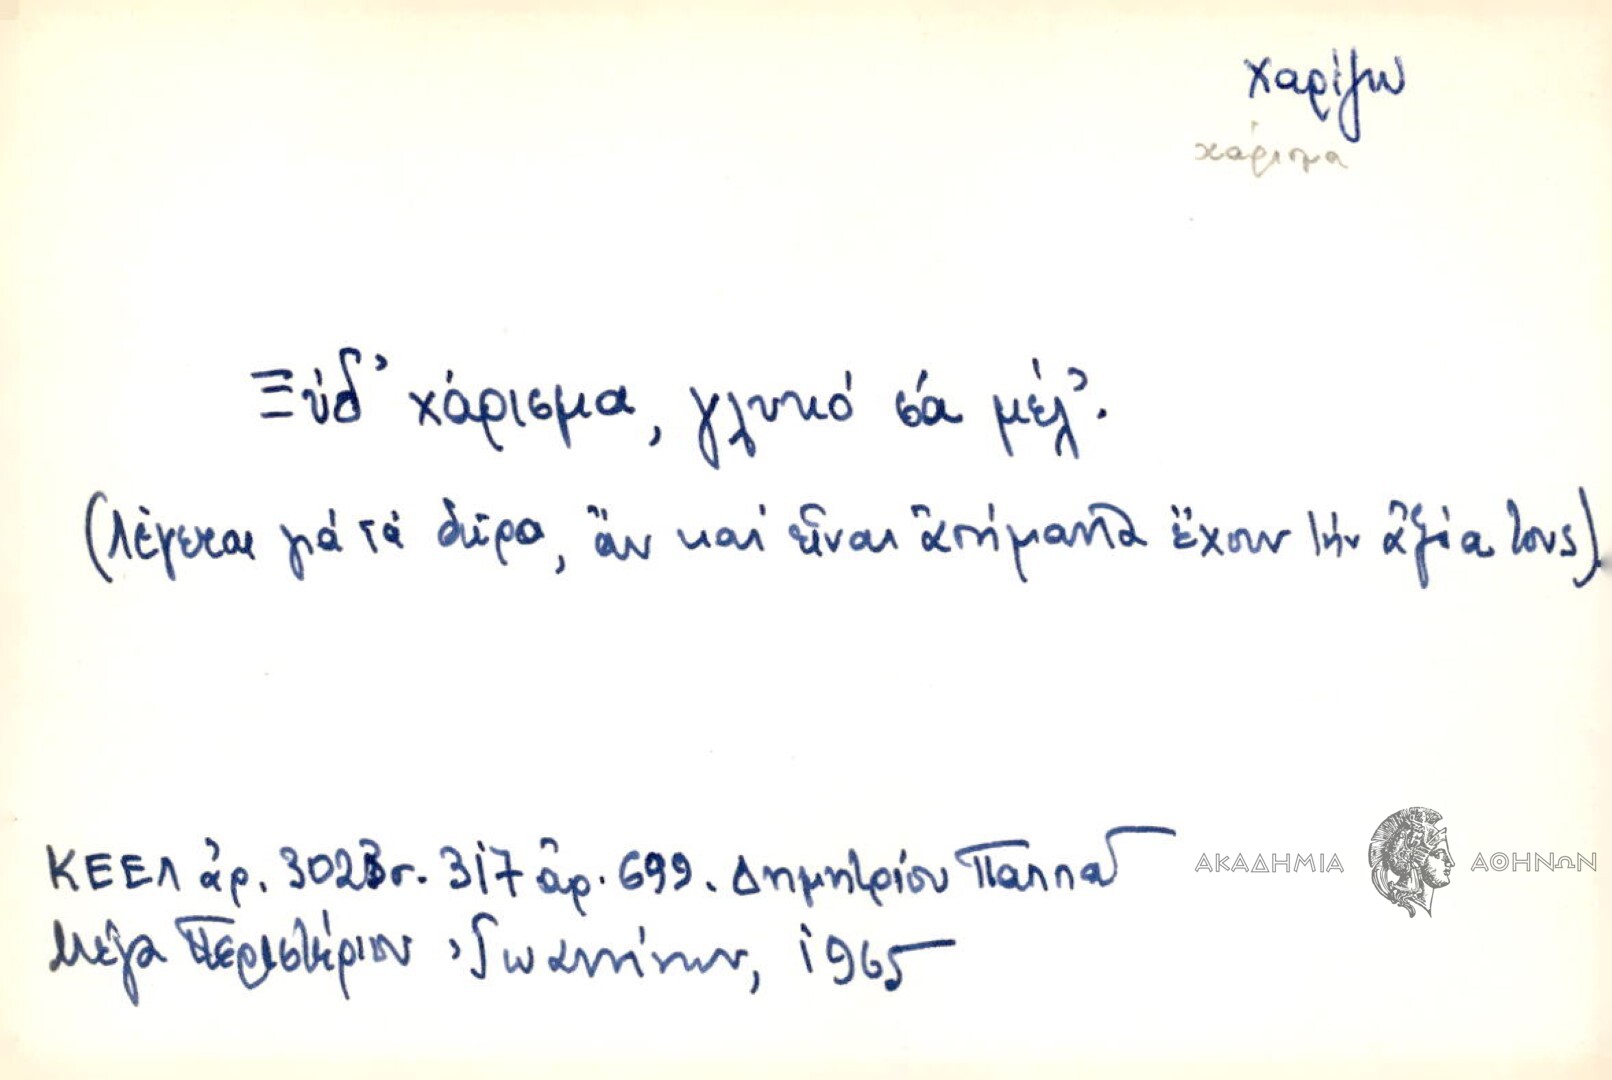 χαρίζω
χάρισμα
Ξύδ' χάρισμα, γλυκό σά μέλ'.
(λέγεται γιά τά δῶρα, ἄν καί εἶναι ἀσήμαντα ἔχουν τήν ἀξία τους).
ΚΕΕΛ ἀρ. 3023 σ. 317 ἀρ. 699. Δημητρίου Παππᾶ
Μέγα Περιστέριον Ἰωαννίνων, 1965
ΑΚΑΔΗΜΙΑ ΑΘΗΝΩΝ